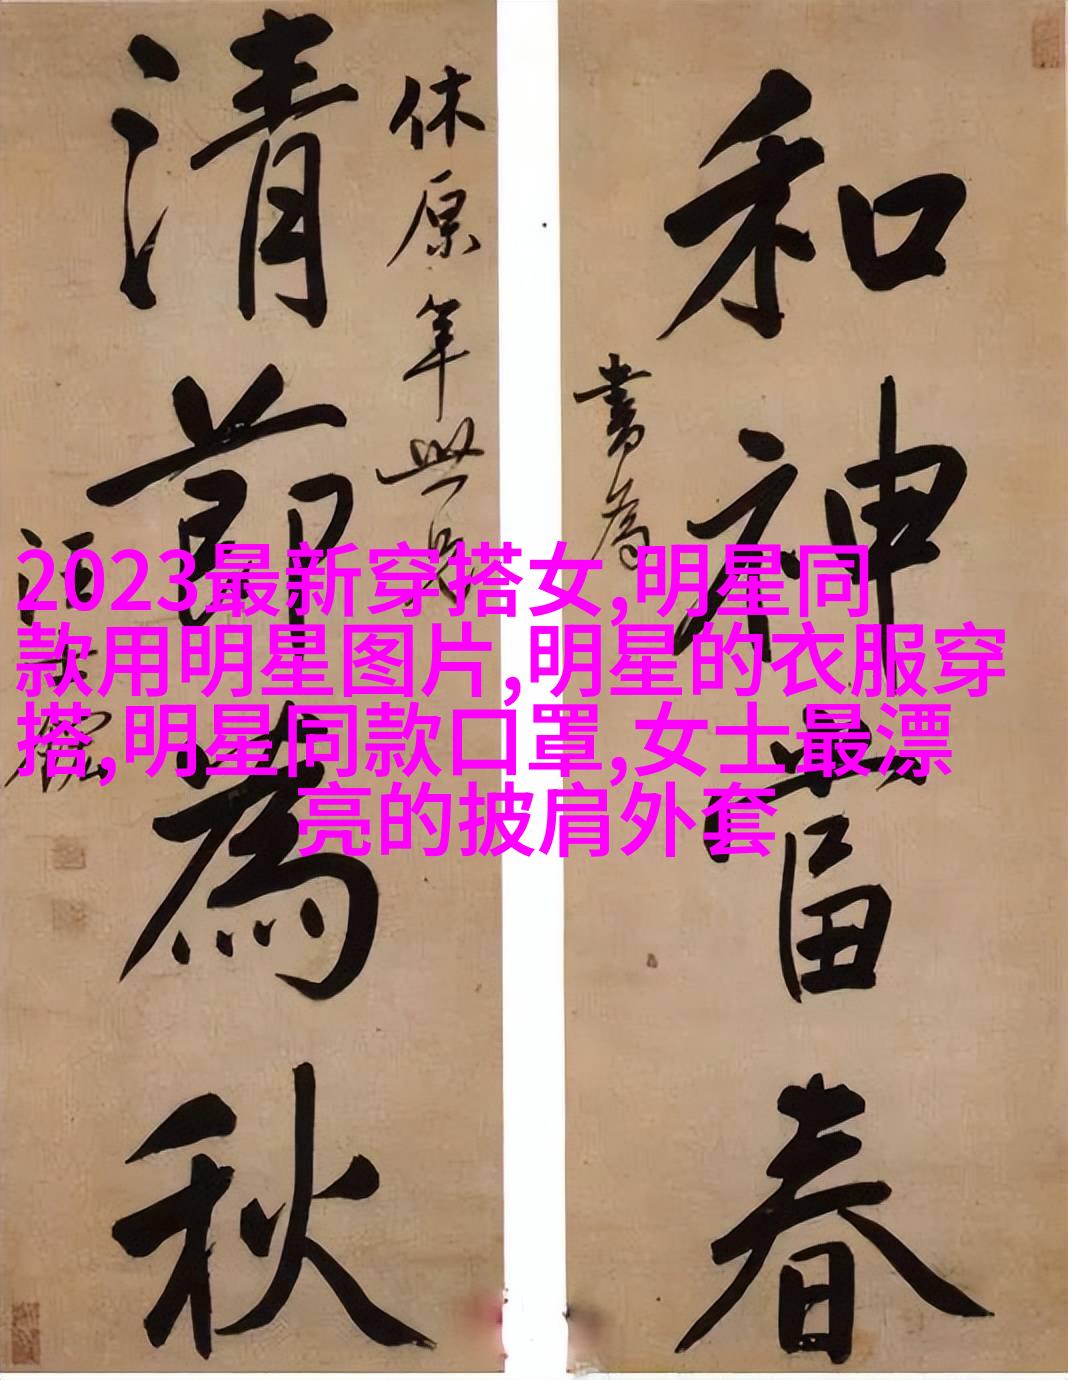 和神當春
清節為秋
休原年世兄
書為
汪士鋐
2023最新穿搭女,明星同
款用明星图片,明星的衣服穿
搭,明星同款口罩,女士最漂
亮的披肩外套